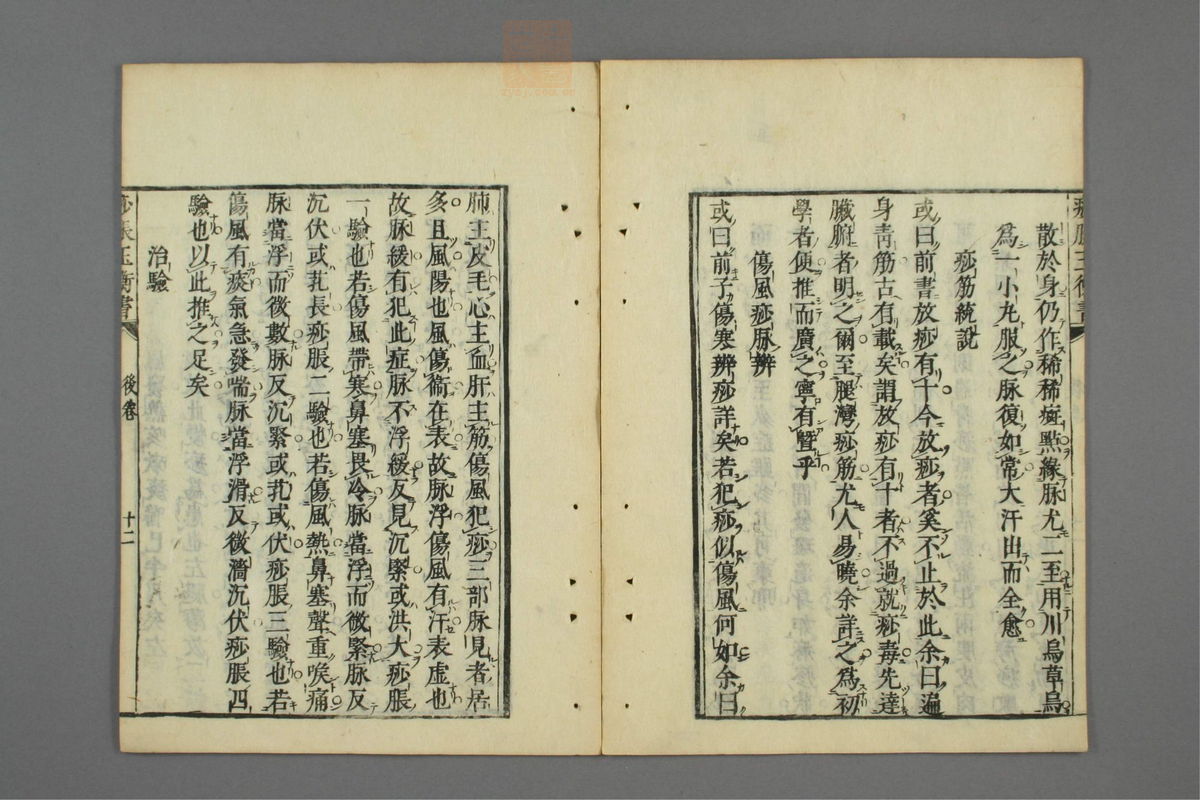 散於身仍作稀稀痧點緣脉尤二至用川烏草烏
爲一小丸服之脉復如常大汗出而全愈
痧筋統說
或曰前書放痧有十今放痧者奚不止於此余曰遍
身青筋古有載矣謂放痧有十者不過就痧毒先達
臟腑者明之爾至腿灣痧筋尤人易曉余詳之爲初
學者便推而廣之寧有曁乎
傷風痧脉辨
或曰前子傷寒辨痧詳矣若犯痧似傷風何如余曰
肺主皮毛心主血肝主筋傷風犯痧三部脉見者居
多且風陽也風傷衞在表故脉浮傷風有汗表虚也
故脉緩有犯此症脉不浮緩反見沉緊或洪大痧脹
一驗也若傷風帶寒鼻塞畏冷脉當浮而微緊脉反
沉伏或芤長痧脹二驗也若傷風熱鼻塞聲重喉痛
脉當浮而微數脉反沉緊或芤或伏痧脹三驗也若
傷風有痰氣急發喘脉當浮滑反微濇沉伏痧脹四
驗也以此推之足矣
治驗
痧脹玉衡書
後卷
十二
zysj.com.cn